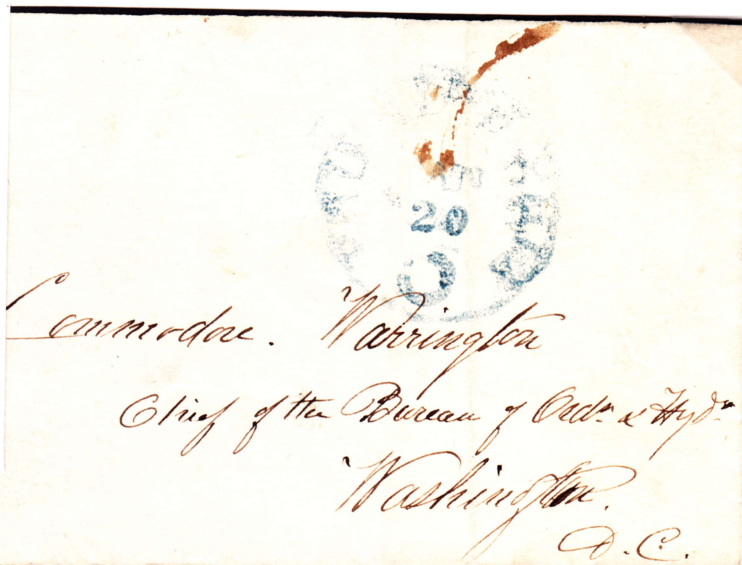 20
Commodore. Warrington
Chief of the Bureau of Ord.n & Hyd.y
Washington.
D.C.